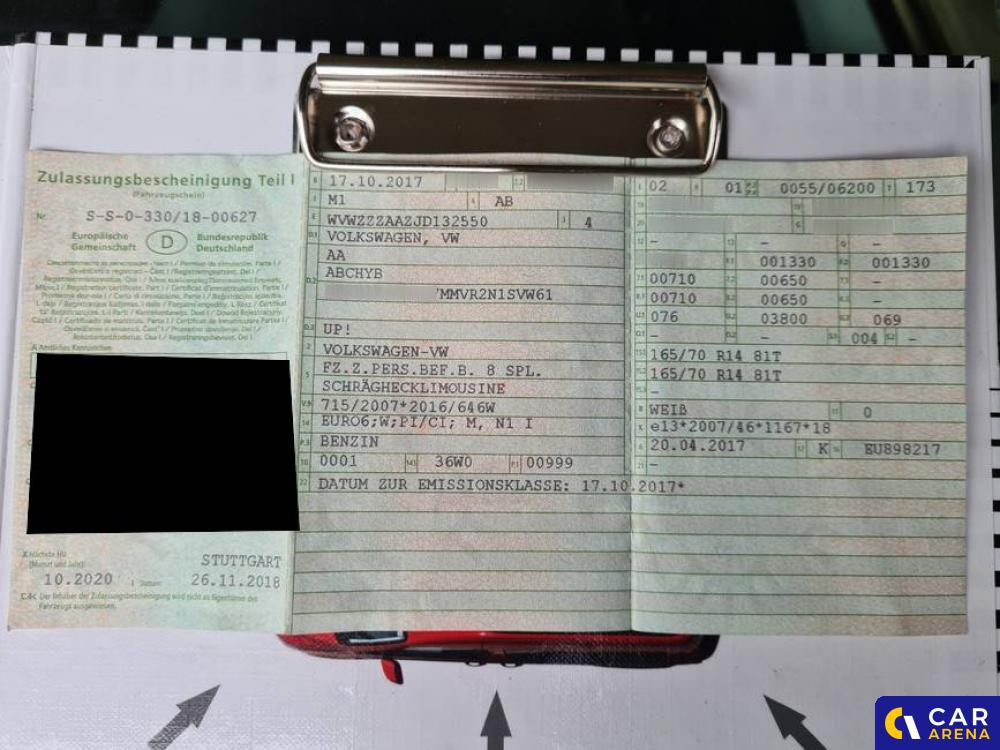 Zulassungsbescheinigung Teil I
(Fahrzeugschein)
Nr. S-S-0-330/18-00627
Europäische Gemeinschaft
D
Bundesrepublik Deutschland
A Amtliches Kennzeichen
X Nächste HU
(Monat und Jahr)
STUTTGART
10.2020
I Datum
26.11.2018
C.4c Der Inhaber der Zulassungsbescheinigung wird nicht als Eigentümer des
Fahrzeugs ausgewiesen.
B 17.10.2017
J M1 4 AB
E WVWZZZAAZJD132550 3 4
D.1 VOLKSWAGEN, VW
AA
D.2 ABCHYB
MMVR2N1SVW61
D.3 UP!
2 VOLKSWAGEN-VW
5 FZ.Z.PERS.BEF.B. 8 SPL.
SCHRÄGHECKLIMOUSINE
V.9 715/2007*2016/646W
14 EURO6;W;PI/CI; M, N1 I
P.3 BENZIN
10 0001 14.1 36W0 P.1 00999
22 DATUM ZUR EMISSIONSKLASSE: 17.10.2017*
L 02 9 01 P.2 P.4 0055/06200 T 173
12 - 13 - Q -
F.1 001330 F.2 001330
7.1 00710 7.2 00650 7.3 -
8.1 00710 8.2 00650 8.3 -
U.1 076 U.2 03800 U.3 069
O.1 - O.2 - S.1 004 S.2 -
15.1 165/70 R14 81T
15.2 165/70 R14 81T
15.3 -
R WEIß 11 0
K e13*2007/46*1167*18
6 20.04.2017 17 K 16 EU898217
21 -
CAR
ARENA